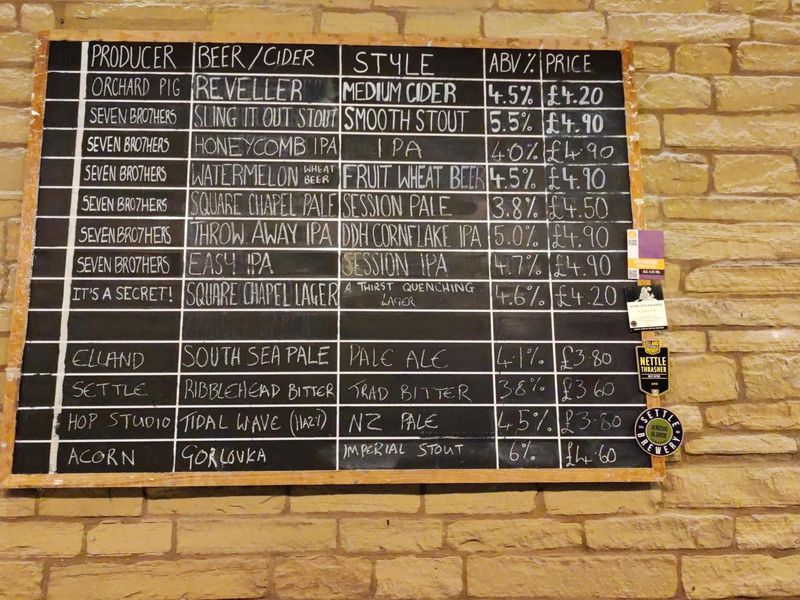 PRODUCER BEER/CIDER STYLE ABV% PRICE
ORCHARD PIG REVELLER MEDIUM CIDER 4.5% £4.20
SEVEN BRO7HERS SLING IT OUT STOUT SMOOTH STOUT 5.5% £4.90
SEVEN BRO7HERS HONEYCOMB IPA IPA 4.0% £4.90
SEVEN BRO7HERS WATERMELON WHEAT BEER FRUIT WHEAT BEER 4.5% £4.90
SEVEN BRO7HERS SQUARE CHAPEL PALE SESSION PALE 3.8% £4.50
SEVEN BRO7HERS THROW AWAY IPA DDH CORNFLAKE IPA 5.0% £4.90
SEVEN BRO7HERS EASY IPA SESSION IPA 4.7% £4.90
IT'S A SECRET! SQUARE CHAPEL LAGER A THIRST QUENCHING LAGER 4.6% £4.20
ELLAND SOUTH SEA PALE PALE ALE 4.1% £3.80
SETTLE RIBBLEHEAD BITTER TRAD BITTER 3.8% £3.60
HOP STUDIO TIDAL WAVE (HAZY) NZ PALE 4.5% £3.80
ACORN GORLOVKA IMPERIAL STOUT 6% £4.60
ELLAND
NETTLE
THRASHER
SETTLE
JERICHO
BLONDE
BREWERY